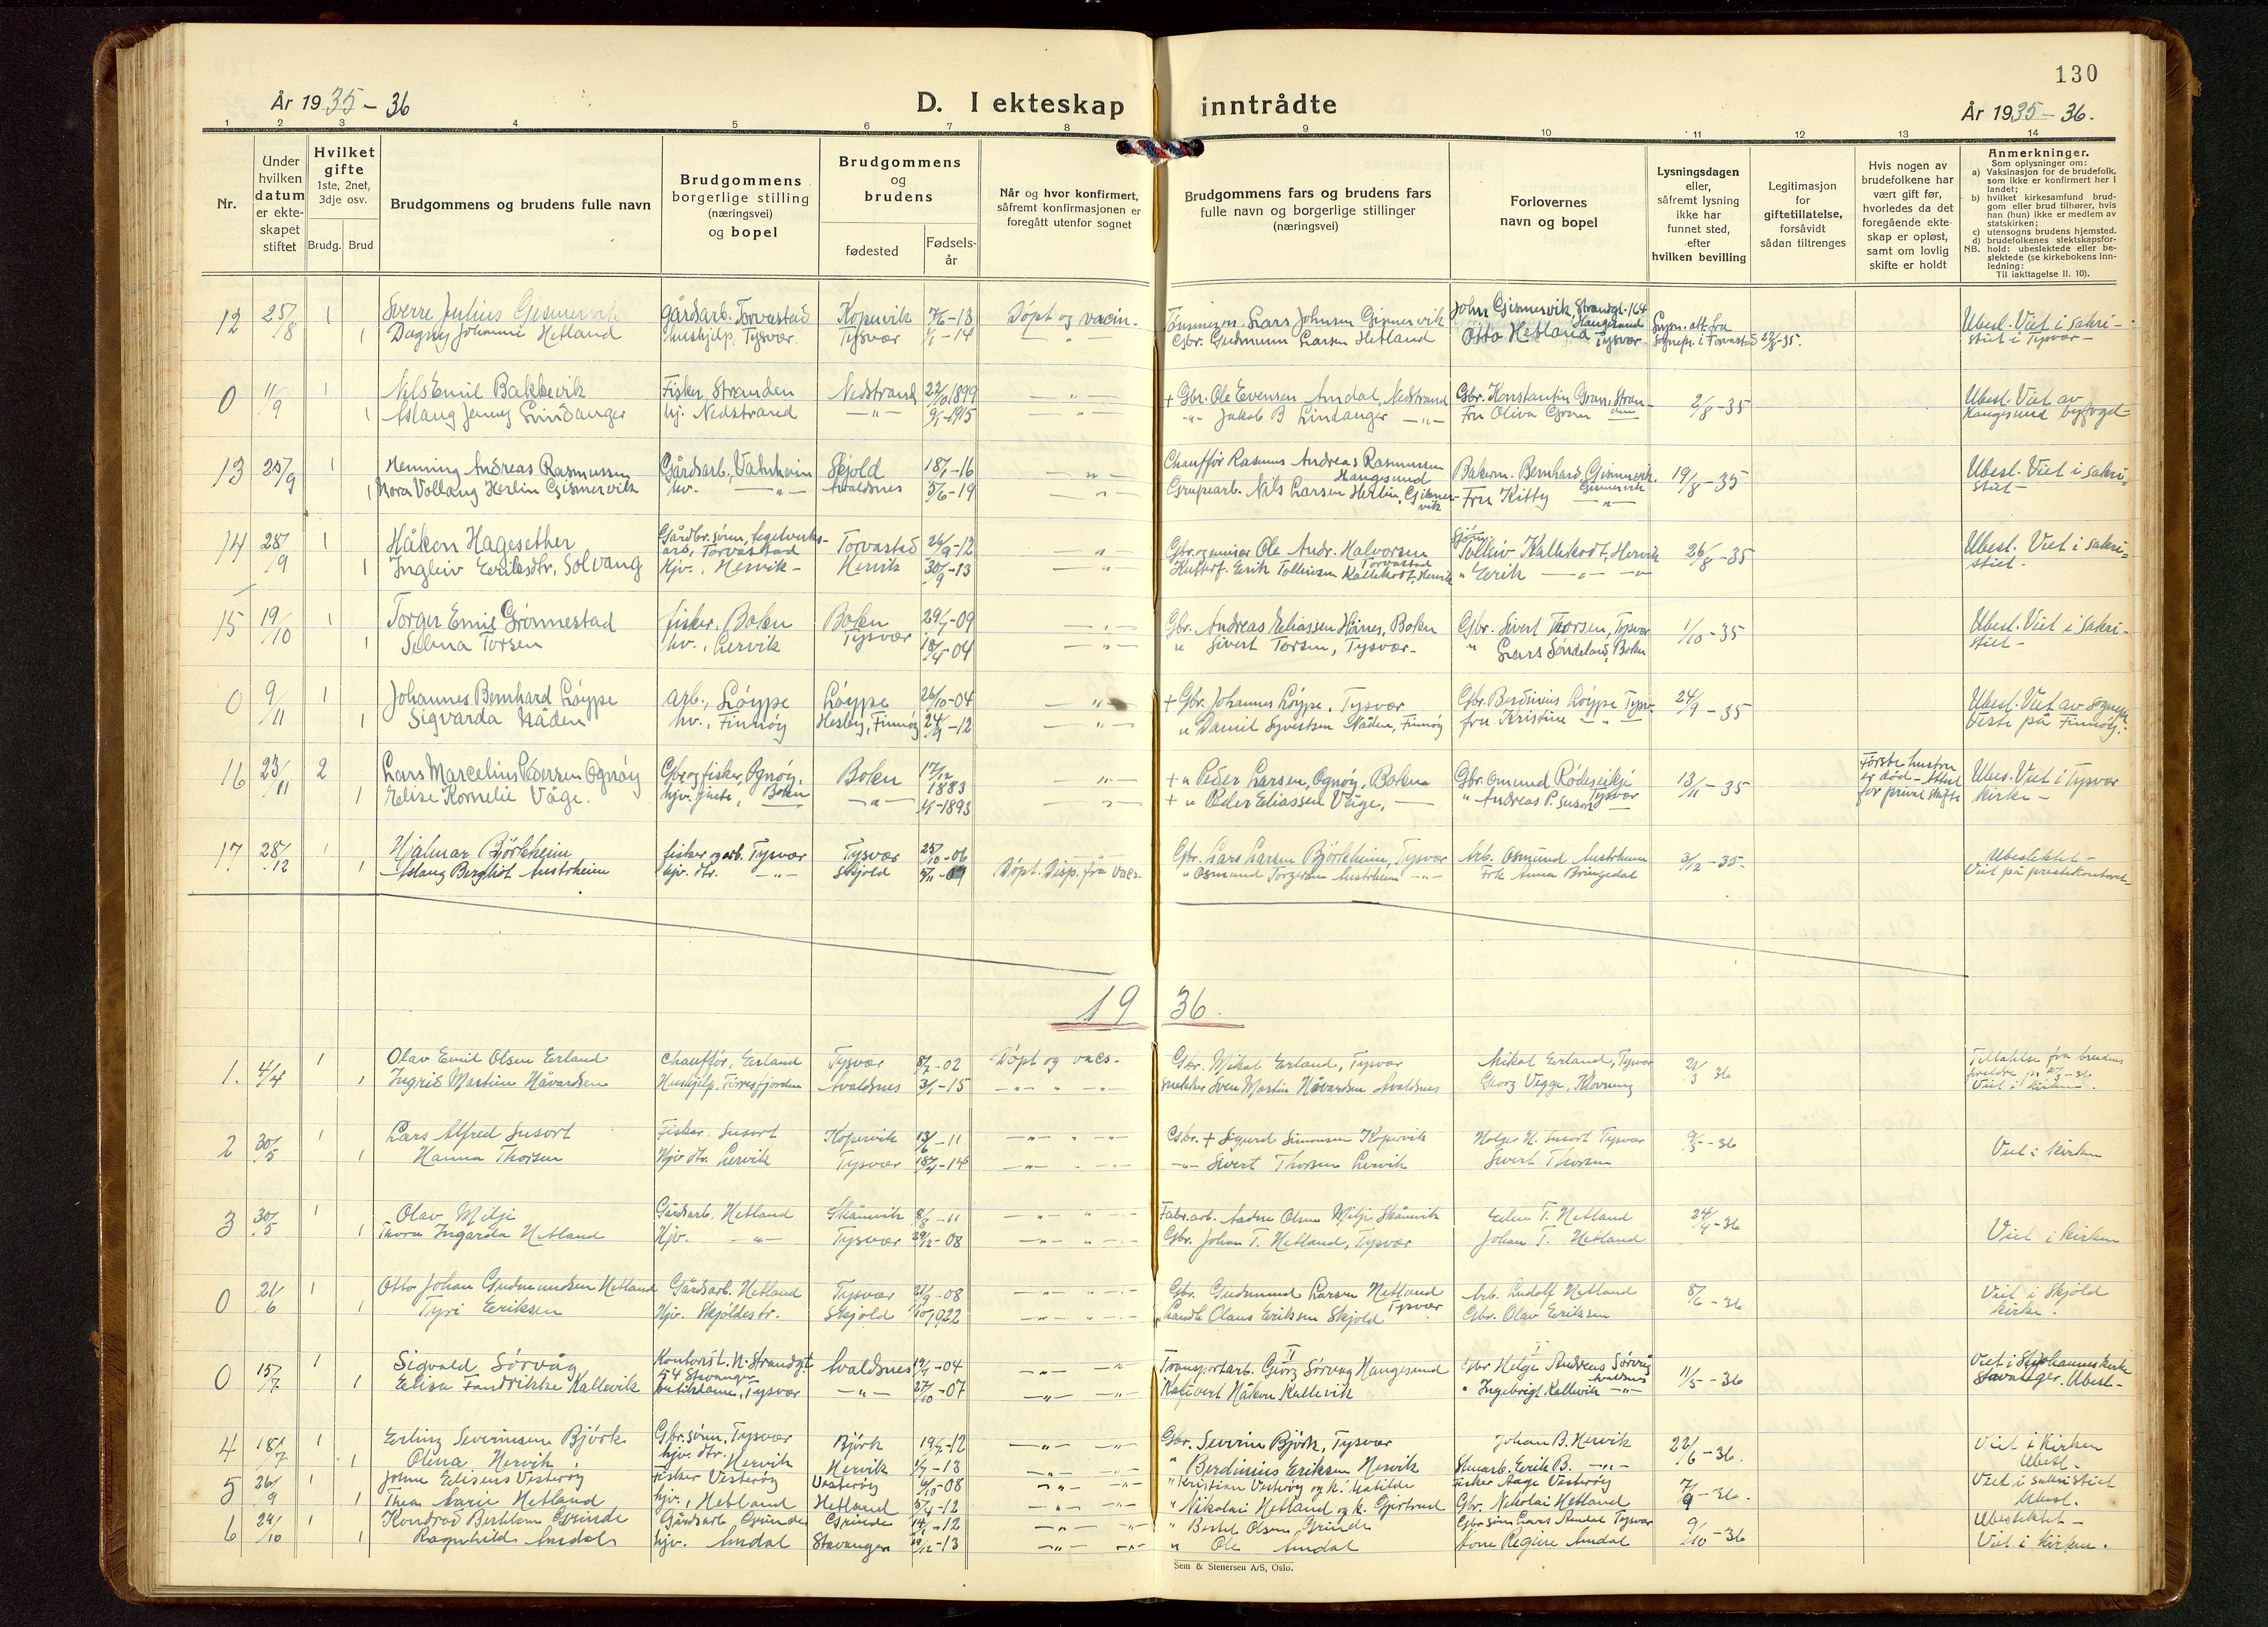 130
År 1935-36
D. I ekteskap inntrådte
År 1935-36.
1 2 3 4 5 6 7 8 9 10 11 12 13 14
Nr.
Under hvilken datum er ekteskapet stiftet
Hvilket gifte 1ste, 2net, 3dje osv.
Brudg. Brud
Brudgommens og brudens fulle navn
Brudgommens borgerlige stilling (næringsvei) og bopel
Brudgommens og brudens
fødested
Fødsels-år
Når og hvor konfirmert, såfremt konfirmasjonen er foregått utenfor sognet
Brudgommens fars og brudens fars fulle navn og borgerlige stillinger (næringsvei)
Forlovernes navn og bopel
Lysningsdagen eller, såfremt lysning ikke har funnet sted, efter hvilken bevilling
Legitimasjon for giftetillatelse, forsåvidt sådan tiltrenges
Hvis nogen av brudefolkene har vært gift før, hvorledes da det foregående ekteskap er opløst, samt om lovlig skifte er holdt
Anmerkninger.
Som oplysninger om:
a) Vaksinasjon for de brudefolk, som ikke er konfirmert her i landet;
b) hvilket kirkesamfund brudgom eller brud tilhører, hvis han (hun) ikke er medlem av statskirken;
c) utensogns brudens hjemsted.
d) brudefolkenes slektskapsforhold: ubeslektede eller beslektede (se kirkebokens innledning:
NB. Til iakttagelse II. 10).
12 25/8 1 Sverre Julius Gismervik Gårdsarb. Torvastad Kopervik -13 Døpt og vacin. Lars Johnsen Gismervik John Gismervik, Strandgt. 164 Haugesund Lysn. att. fra Ubesl. Viet i sakri-
1 Dagny Johanne Hetland hushjelp. Tysvær. Tysvær 1/1-14 -"- Gbr. Gudmunn Larsen Hetland Otto Hetland Tysvær sognepr. i Torvastad 22/8-35. stiet i Tysvær -
0 11/9 1 Nils Emil Bakkevik Fisker, Stranden Nedstrand 22/10 1899 -"- + Gbr. Ole Evensen Amdal, Nedstrand Gbr. Konstantin Gran, Stranden 2/8-35 Ubesl. Viet av
1 Aslaug Jenny Lindanger hj. Nedstrand -"- 9/1-1915 -"- -"- Jakob B Lindanger -"- Fru Oliva Gran Haugesund byfoget-
13 25/9 1 Henning Andreas Rasmussen Gårdsarb., Vatnheim Skjold 18/1-16 -"- Chauffør Rasmus Andreas Rasmussen Haugesund Bakerm. Bernhard Gismervik 19/8-35 Ubesl. Viet i sakri-
1 Nora Vollaug Herlin Gismervik hv. -"- Avaldsnes 5/6-19 -"- Gruvearb. Nils Larsen Herlin, Gismervik Fru Kitty Gismervik stiet -
14 28/9 1 Håkon Hagesether Gårdbr.sønn, Torvastad Torvastad 26/9-12 -"- Gbr. og Ole Andr. Halvorsen Torvastad Tolleiv Kallekodt, Hervik 26/8-35 Ubesl. Viet i sakri-
1 Ingleiv Eeriksdtr. Solvang Hjv., Hervik- Hervik 30/9-13 -"- Eerik Tolleivsen Kallekodt, Hervik " Eerik -"- -"- stiet.
15 19/10 1 Torger Emil Grønnestad fisker, Boken Boken 29/1-09 -"- Gbr. Andreas Eliassen Høines, Boken Gbr. Sivert Thorsen, Tysvær 1/10-35 Ubesl. Viet i sakri-
1 Selma Torsen hv., Lervik Tysvær 18/4-04 -"- " Sivert Torsen, Tysvær- " Lars Søndeland, Boken stiet -
0 9/11 1 Johannes Bernhard Løyppe arb., Løyppe Løyppe 26/10-04 -"- + Gbr. Johannes Løyppe, Tysvær Gbr. Berdinius Løyppe Tysv. 24/9-35 Ubesl. Viet av sognepr.
1 Sigvarda Nåden hv., Finnøy Hesby, Finnøy 24/9-12 -"- " Daniel Syvertsen Nåden, Finnøy fru Kristine -"- Veste på Finnøy.
16 23/11 2 Lars Marcelius Pedersen Ognøy Gbr. og fisker, Ognøy, Boken Boken 17/12 1883 -"- + " Peder Larsen, Ognøy, Bokna Gbr. Omund Rødseike Tysvær 13/11-35 Første hustru er død - Attest for privat skifte Ubes. Viet i Tysvær
1 Elise Kornelie Våge. hjv. -"- 1/1-1893 -"- + " Peder Eliassen Våge, " Andreas P. Susort kirke -
17 28/12 1 Hjalmar Bjørkheim fisker og arb. Tysvær Tysvær 25/10-06 Gbr. Lars Larsen Bjørkheim, Tysvær Arb. Osmund Austrheim 3/12-35- Ubeslektet -
1 Aslaug Bergliot Austrheim hjv. dtr. -"- Skjold 5/11-09 Døpt. Disp. fra vacs. " Osmund Torgersen Austrheim -"- Frk Anna Bringedal Viet på prestekontoret -
19 36.
1. 4/4 1 Olav Emil Olsen Eerland Chauffør, Eerland Tysvær 8/2-02 Døpt og vacs. Gbr. Mikal Eerland, Tysvær Mikal Eerland, Tysvær 21/3 36 Tillatelse fra brudens foreldre
1 Ingrid Martine Håvardsen Hushjelp, Førresfjorden Avaldsnes 3/1-15 -"- " -"- snekker Sven Martin Håvardsen Avaldsnes Georg Vegge, Klovning Viet i kirken.
2 30/5 1 Lars Alfred Susort Fisker. Susort Kopervik 13/6-11 -"- " -"- Gbr. + Sigurd Simonsen Kopervik Holger N. Susort Tysvær 9/5-36 Viet i kirken
1 Hanna Thorsen Hjv dtr. Lervik Tysvær 18/4-14 -"- -"- Sivert Thorsen Lervik Sivert Thorsen
3 30/5 1 Olav Milje Gårdsarb. Hetland Skånevik 8/8-11 -"- " -"- Fabr.arb. Anders Olsen Milje Skånevik Eilen T. Hetland 24/4-36 Viet i kirken
1 Thora Ingarda Hetland Hjv. -"- Tysvær 29/12-08 -"- " -"- Gbr. Johan T. Hetland, Tysvær Johan T. Hetland
0 21/6 1 Otto Johan Gudmundsen Hetland Gårdsarb. Hetland Tysvær 21/9-08 -"- " -"- Gbr. Gudmund Larsen Hetland Tysvær Arb. Ludolf Hetland 8/6-36 Viet i Skjold
1 Tyri Eeriksen Hjv. Skjoldestr. Skjold -"- " -"- Landh. Olaus Eeriksen Skjold Gbr. Olav Eeriksen kirke.
0 15/7 1 Sigvald Sørvåg Kontorist. N. Strandgt 54 Stavanger Avaldsnes 19/1-04 -"- -"- Transportarb. Georg Sørvåg Haugesund Gbr Helge Andreas Sørvåg Avaldsnes 11/5-36 Viet i St. Johannes kirke
1 Elisa Fredrikke Kallevik Butikdame, Tysvær -"- 27/10-07 -"- -"- Håkon Kallevik " Ingebrigt Kallevik -"- Stavanger. Ubesl-
4 18/7 1 Erling Severinsen Bjørk Gbr.sønn, Tysvær Bjørk 19/2-12 -"- -"- Gbr. Severin Bjørk, Tysvær Johan B. Hervik 22/6-36. Viet i Kirken
1 Olina Hervik hjv. dtr. Hervik Hervik 1/7-13 -"- -"- " Berdinius Eeriksen Hervik Eerik B. -"- Ubesl -
5 26/9 1 Johan Elisens Vesterøy Fisker Vesterøy Vesterøy 6/10-08 -"- -"- " Kristian Vesterøy og k. Matilde Fisker Aage Vesterøy 7/9-36. Viet i sakristiet
1 Thea Marie Hetland hjv., Hetland Hetland 5/4-12 -"- -"- " Nikolai Hetland og k. Gjertrud Gbr. Nikolai Hetland Ubesl.
6 24/10 1 Kondrad Berthten Grinde Gårdsarb Grinde Grinde 14/1-12 -"- -"- " Bertel Olsen Grinde Gbr.sønn Lars Amdal Tysvær 9/10-36 Ubeslektet -
1 Ragnhild Amdal hjv. Amdal Stavanger 19/12-13 -"- -"- " Ole Amdal Regine Amdal Viet i kirken.
Sem & Stenersen A/S, Oslo.